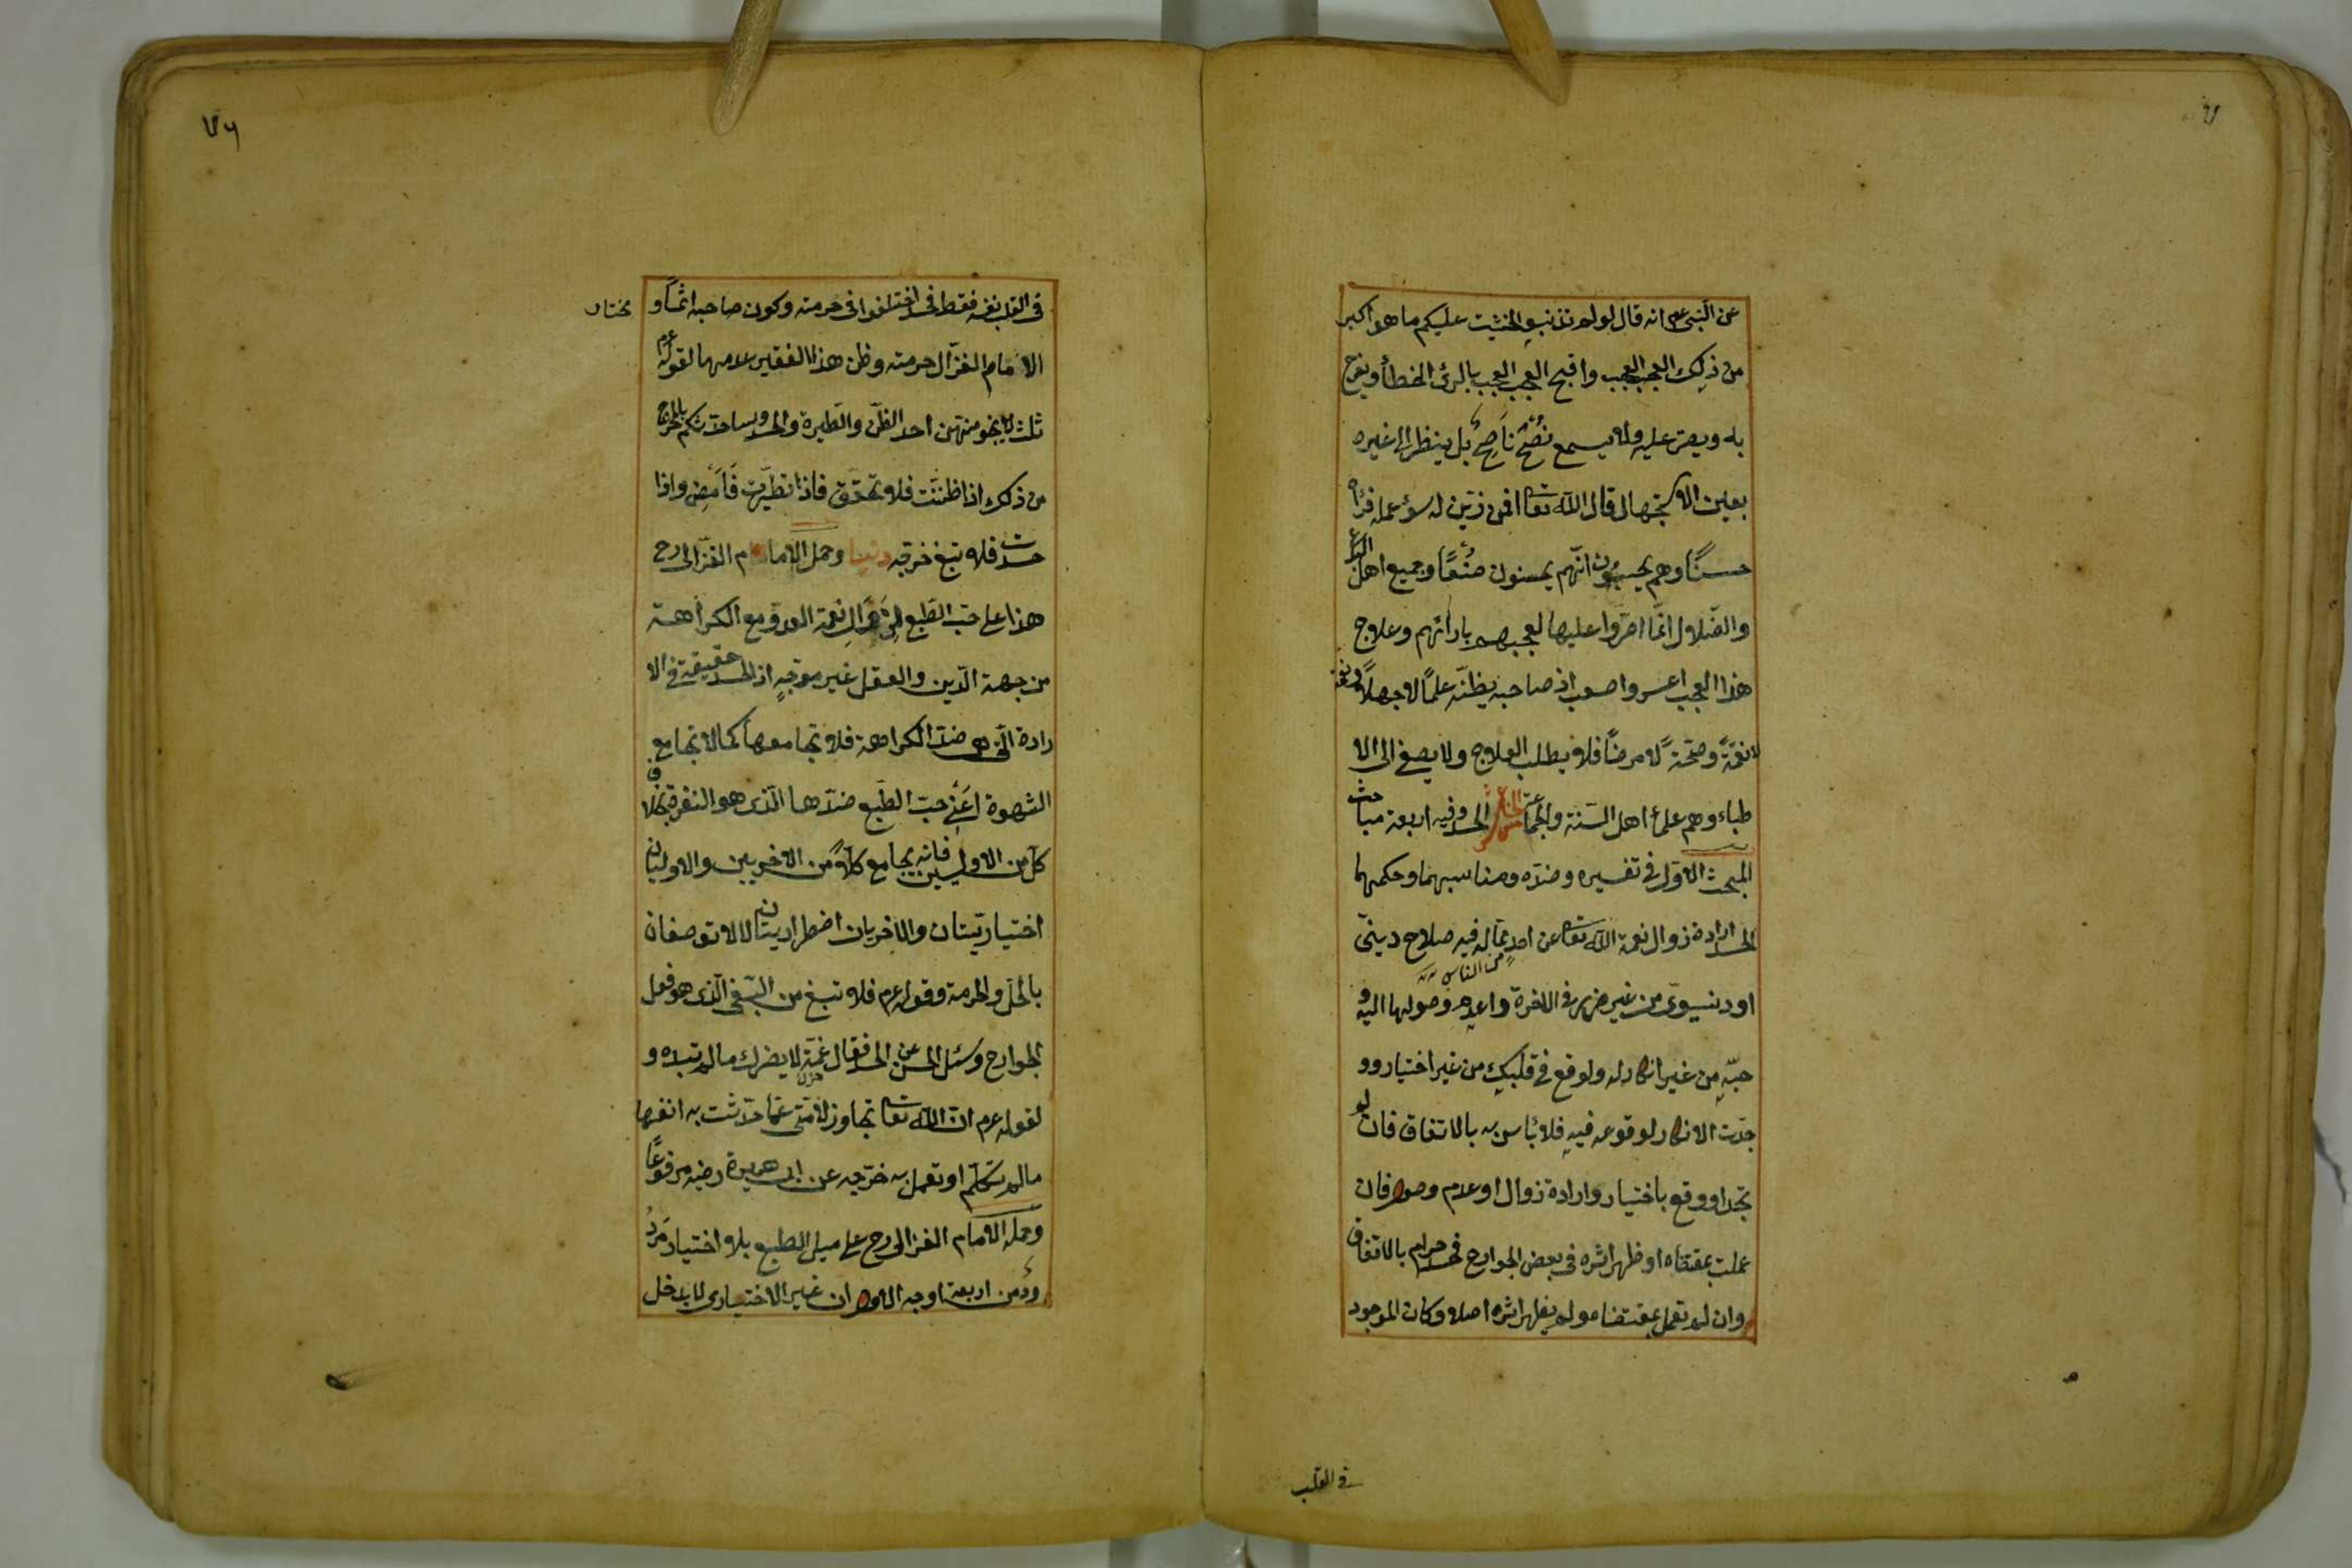 عن النبى عم انه قال لو لم تذنبوا لخشيت عليكم ما هو اكبر
من ذلك العجب العجب واقبح العجب العجب بالرئ الخطأ ويفرح
به ويصر عليه ولا يسمع نُصْحَ نَاصِحٍ بل ينظر الى غيره
بعين الاستجهال قال الله تعا افمن زيّن له سوء عمله فرأه
حسنًا وهم يحسبون انّهم يحسنون صُنْعًا وجميع اهل البدع
والضّلال انّما اصرّوا عليها لعجبهم بارائهم وعلاج
هذا العجب اعسر واصعب اذ صاحبه يظنّه علمًا لا جهلاً ونعمة
لا نقمةً وصحّةً لا مرضًا فلا يطلب العلاج ولا يصغى الى الا
طباء وهم علمأ اهل السّنة والجماعة الحسد وفيه اربعة مباحث
المبحث الاوّل فى تفسيره وضدّه ومناسبهما وحكمهما
الحسد ارادة زوال نعمة الله تعا عن احد ممّا له فيه صلاح دينىّ
من الناس
او دنيوىّ من غير ضرر فى الاخرة واعدم وصولها اليه و
حبّه من غير انكار له ولو وقع فى قلبك من غير اختيار وو
جدت الانكار لوقوعه فيه فلا بأس به بالاتفاق فان لو
تجد او وقع باختيار وارادة زوال او عدم وصول فان
عملت بمقتضاه او ظهر اثره فى بعض الجوارح فحسد حرام بالاتفاق
وان لم تعمل بمقتضاه ولم يظهر اثره اصلا وكان الموجود
فى القلب
فى القلب نفسه فقط فحسد اختلفوا فى حرمته وكون صاحبه اثمًا و
مختار
الامام الغزّال حرمته وظن هذا الفقير عدمها لقوله عم
ثلث لا ينجو منهن احد الظنّ والطّيرة والحسد وساحدثكم بالمخرج
من ذلك اذا ظننت فلا تحقّق فاذا تطيّرت فَامْضِ واذا
حسدت فلا تبغ خرجه دنيا وحمل الامام الغزّالى رح
هذا على حبّ الطّبع لزوال نعمة العدوّ مع الكراهة
من جهة الدّين والعقل غير موجّهٍ اذ الحسد حقيقة فى الا
رادة الّتى هى ضدّ الكراهة فلا تجامعها كما لا تجامع
الشهوة اعنى حبّ الطّبع ضدّها الّذى هو النفرة بخلاف
كلّ من الاولين فانه يجامع كلاًّ من الاخريين والاوليان
اختياريّتان والاخريان اضطراريّتان لا لا توصفان
بالحلّ والحرمة وقوله عم فلا تبغ من البغى الّذى هو فعل
الجوارح وسئل الحسن عن الحسد فقال غمّه لا يضرك ما لم تبده و
لقوله عم انّ الله تعا تجاوز لامّتى عمّا حدّثت به انفسها
ما لم تتكلّم او تعمل به خرّجه عن ابى هريرة رضيه مرفوعًا
وحمله الامام الغزالى رح على ميل الطبع بلا اختيار مَرْدُ
ودٌ من اربعة اوجه الاول ان غير الاختيارى لا يدخل